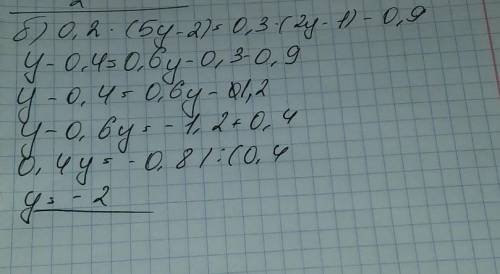 б) 0,2 · (5y-2) = 0,3 · (2y-1) - 0,9
y - 0,4 = 0,6y - 0,3 - 0,9
y - 0,4 = 0,6y - 1,2
y - 0,6y = - 1,2 + 0,4
0,4y = - 0,8 | : (0,4
y = - 2